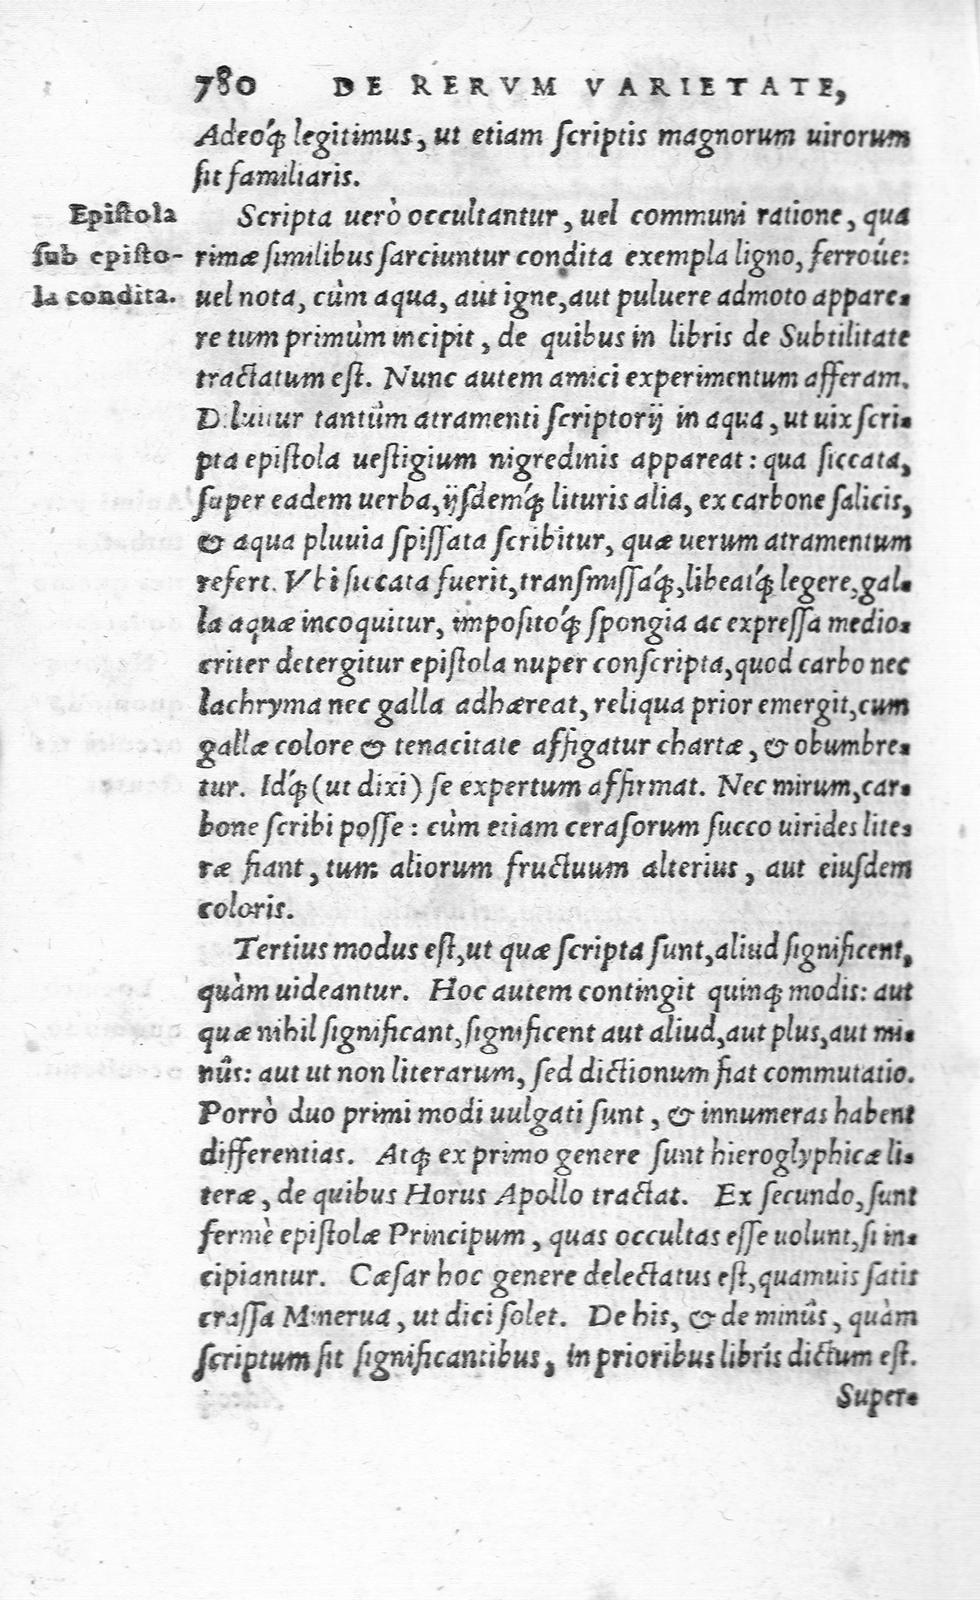 780 DE RERVM VARIETATE,
Adeoq́; legitimus, ut etiam ſcriptis magnorum uirorum
ſit familiaris.
Epiſtola
ſub epiſto-
la condita.
Scripta uerò occultantur, uel communi ratione, qua
rimæ ſimilibus ſarciuntur condita exempla ligno, ferroúe:
uel nota, cùm aqua, aut igne, aut puluere admoto appare-
re tum primùm incipit, de quibus in libris de Subtilitate
tractatum eſt. Nunc autem amici experimentum afferam.
Diluitur tantùm atramenti ſcriptorij in aqua, ut uix ſcri-
pta epiſtola ueſtigium nigredinis appareat: qua ſiccata,
ſuper eadem uerba, ijſdemq́; lituris alia, ex carbone ſalicis,
& aqua pluuia ſpiſſata ſcribitur, quæ uerum atramentum
refert. Vbi ſiccata fuerit, tranſmiſſaq́;, libeatq́; legere, gal-
la aquæ incoquitur, impoſitoq́; ſpongia ac expreſſa medio-
criter detergitur epiſtola nuper conſcripta, quod carbo nec
lachryma nec galla adhæreat, reliqua prior emergit, cum
gallæ colore & tenacitate affigatur chartæ, & obumbre-
tur. Idq́; (ut dixi) ſe expertum affirmat. Nec mirum, car-
bone ſcribi poſſe: cùm etiam ceraſorum ſucco uirides lite-
ræ fiant, tum aliorum fructuum alterius, aut eiuſdem
coloris.
Tertius modus eſt, ut quæ ſcripta ſunt, aliud ſignificent,
quàm uideantur. Hoc autem contingit quinq; modis: aut
quæ nihil ſignificant, ſignificent aut aliud, aut plus, aut mi-
nûs: aut ut non literarum, ſed dictionum fiat commutatio.
Porrò duo primi modi uulgati ſunt, & innumeras habent
differentias. Atq; ex primo genere ſunt hieroglyphicæ li-
teræ, de quibus Horus Apollo tractat. Ex ſecundo, ſunt
fermè epiſtolæ Principum, quas occultas eſſe uolunt, ſi in-
cipiantur. Cæſar hoc genere delectatus eſt, quamuis ſatis
craſſa Minerua, ut dici ſolet. De his, & de minûs, quàm
ſcriptum ſit ſignificantibus, in prioribus libris dictum eſt.
Super-